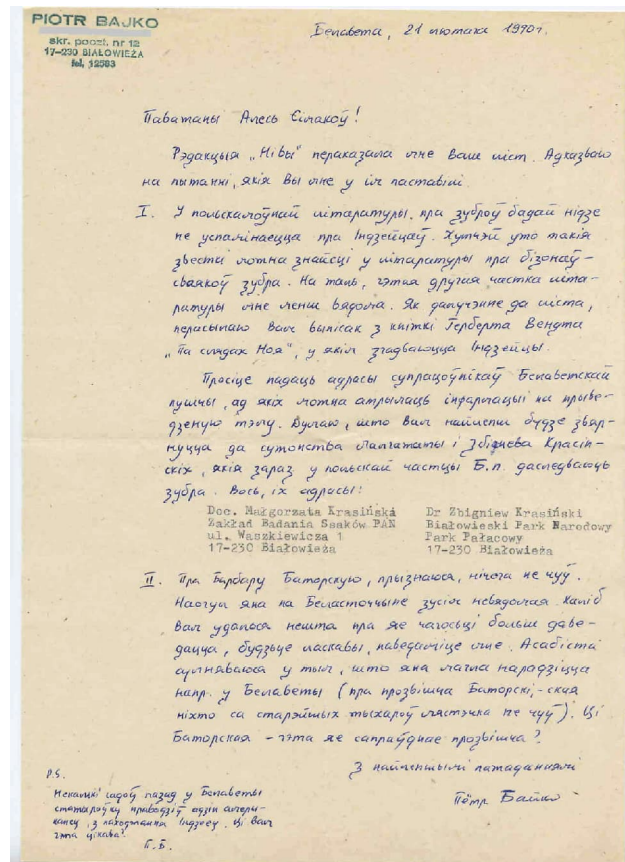 PIOTR BAJKO
skr. poczt. nr 12
17-230 BIAŁOWIEŻA
tel. 12583
Белавежа, 21 лютага 1990 г.
Паважаны Алесь Сімакоў!
Рэдакцыя „Нівы" пераказала мне Ваш ліст. Адказваю
на пытанні, якія Вы мне у ім паставілі.
I. У польскамоўнай літаратуры пра зуброў бадай нідзе
не успамінаецца пра Індзейцаў. Хутчэй ужо такія
звесткі можна знайсці у літаратуры пра бізонаў –
сваякоў зубра. На жаль, гэтая другая частка літа-
ратуры мне менш вядома. Як далучэнне да ліста,
перасылаю Вам выпісак з кніжкі Герберта Вендта
„Па слядах Ноя", у якім згадваюцца Індзейцы.
Просіце падаць адрасы супрацоўнікаў Белавежскай
пушчы, ад якіх можна атрымаць інфармацыі на прыве-
дзеную тэму. Думаю, што Вам найлепш будзе звяр-
нуцца да сужонства Малгажаты і Збігнева Красін-
скіх, якія зараз у польскай частцы Б.п. даследваюць
зубра. Вось, іх адрасы:
Doc. Małgorzata Krasińska Dr Zbigniew Krasiński
Zakład Badania Ssaków PAN Białowieski Park Narodowy
ul. Waszkiewicza 1 Park Pałacowy
17-230 Białowieża 17-230 Białowieża
II. Пра Барбару Баторскую, прызнаюся, нічога не чуў.
Наогул яна на Беласточчыне зусім невядомая. Каліб
Вам удалося нешта пра яе чагосьці больш даве-
дацца, будзьце ласкавы, паведаміце мне. Асабіста
сумняваюся у тым, што яна магла нарадзіцца
напр. у Белавежы (пра прозвішча Баторскі, -ская
ніхто са старэйшых жыхароў мястэчка не чуў). Ці
Баторская – гэта яе сапраўднае прозвішча?
З найлепшымі пажаданнямі
Пётр Байко
P.S.
Некалькі гадоў назад у Белавежы
праводзіў адзін амеры-
канец, з паходжання Індзеец. Ці Вам
гэта цікава?
П.Б.